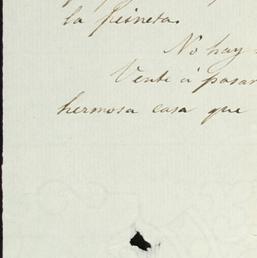 la peineta.
No hay
Vente á pasar
hermosa casa que